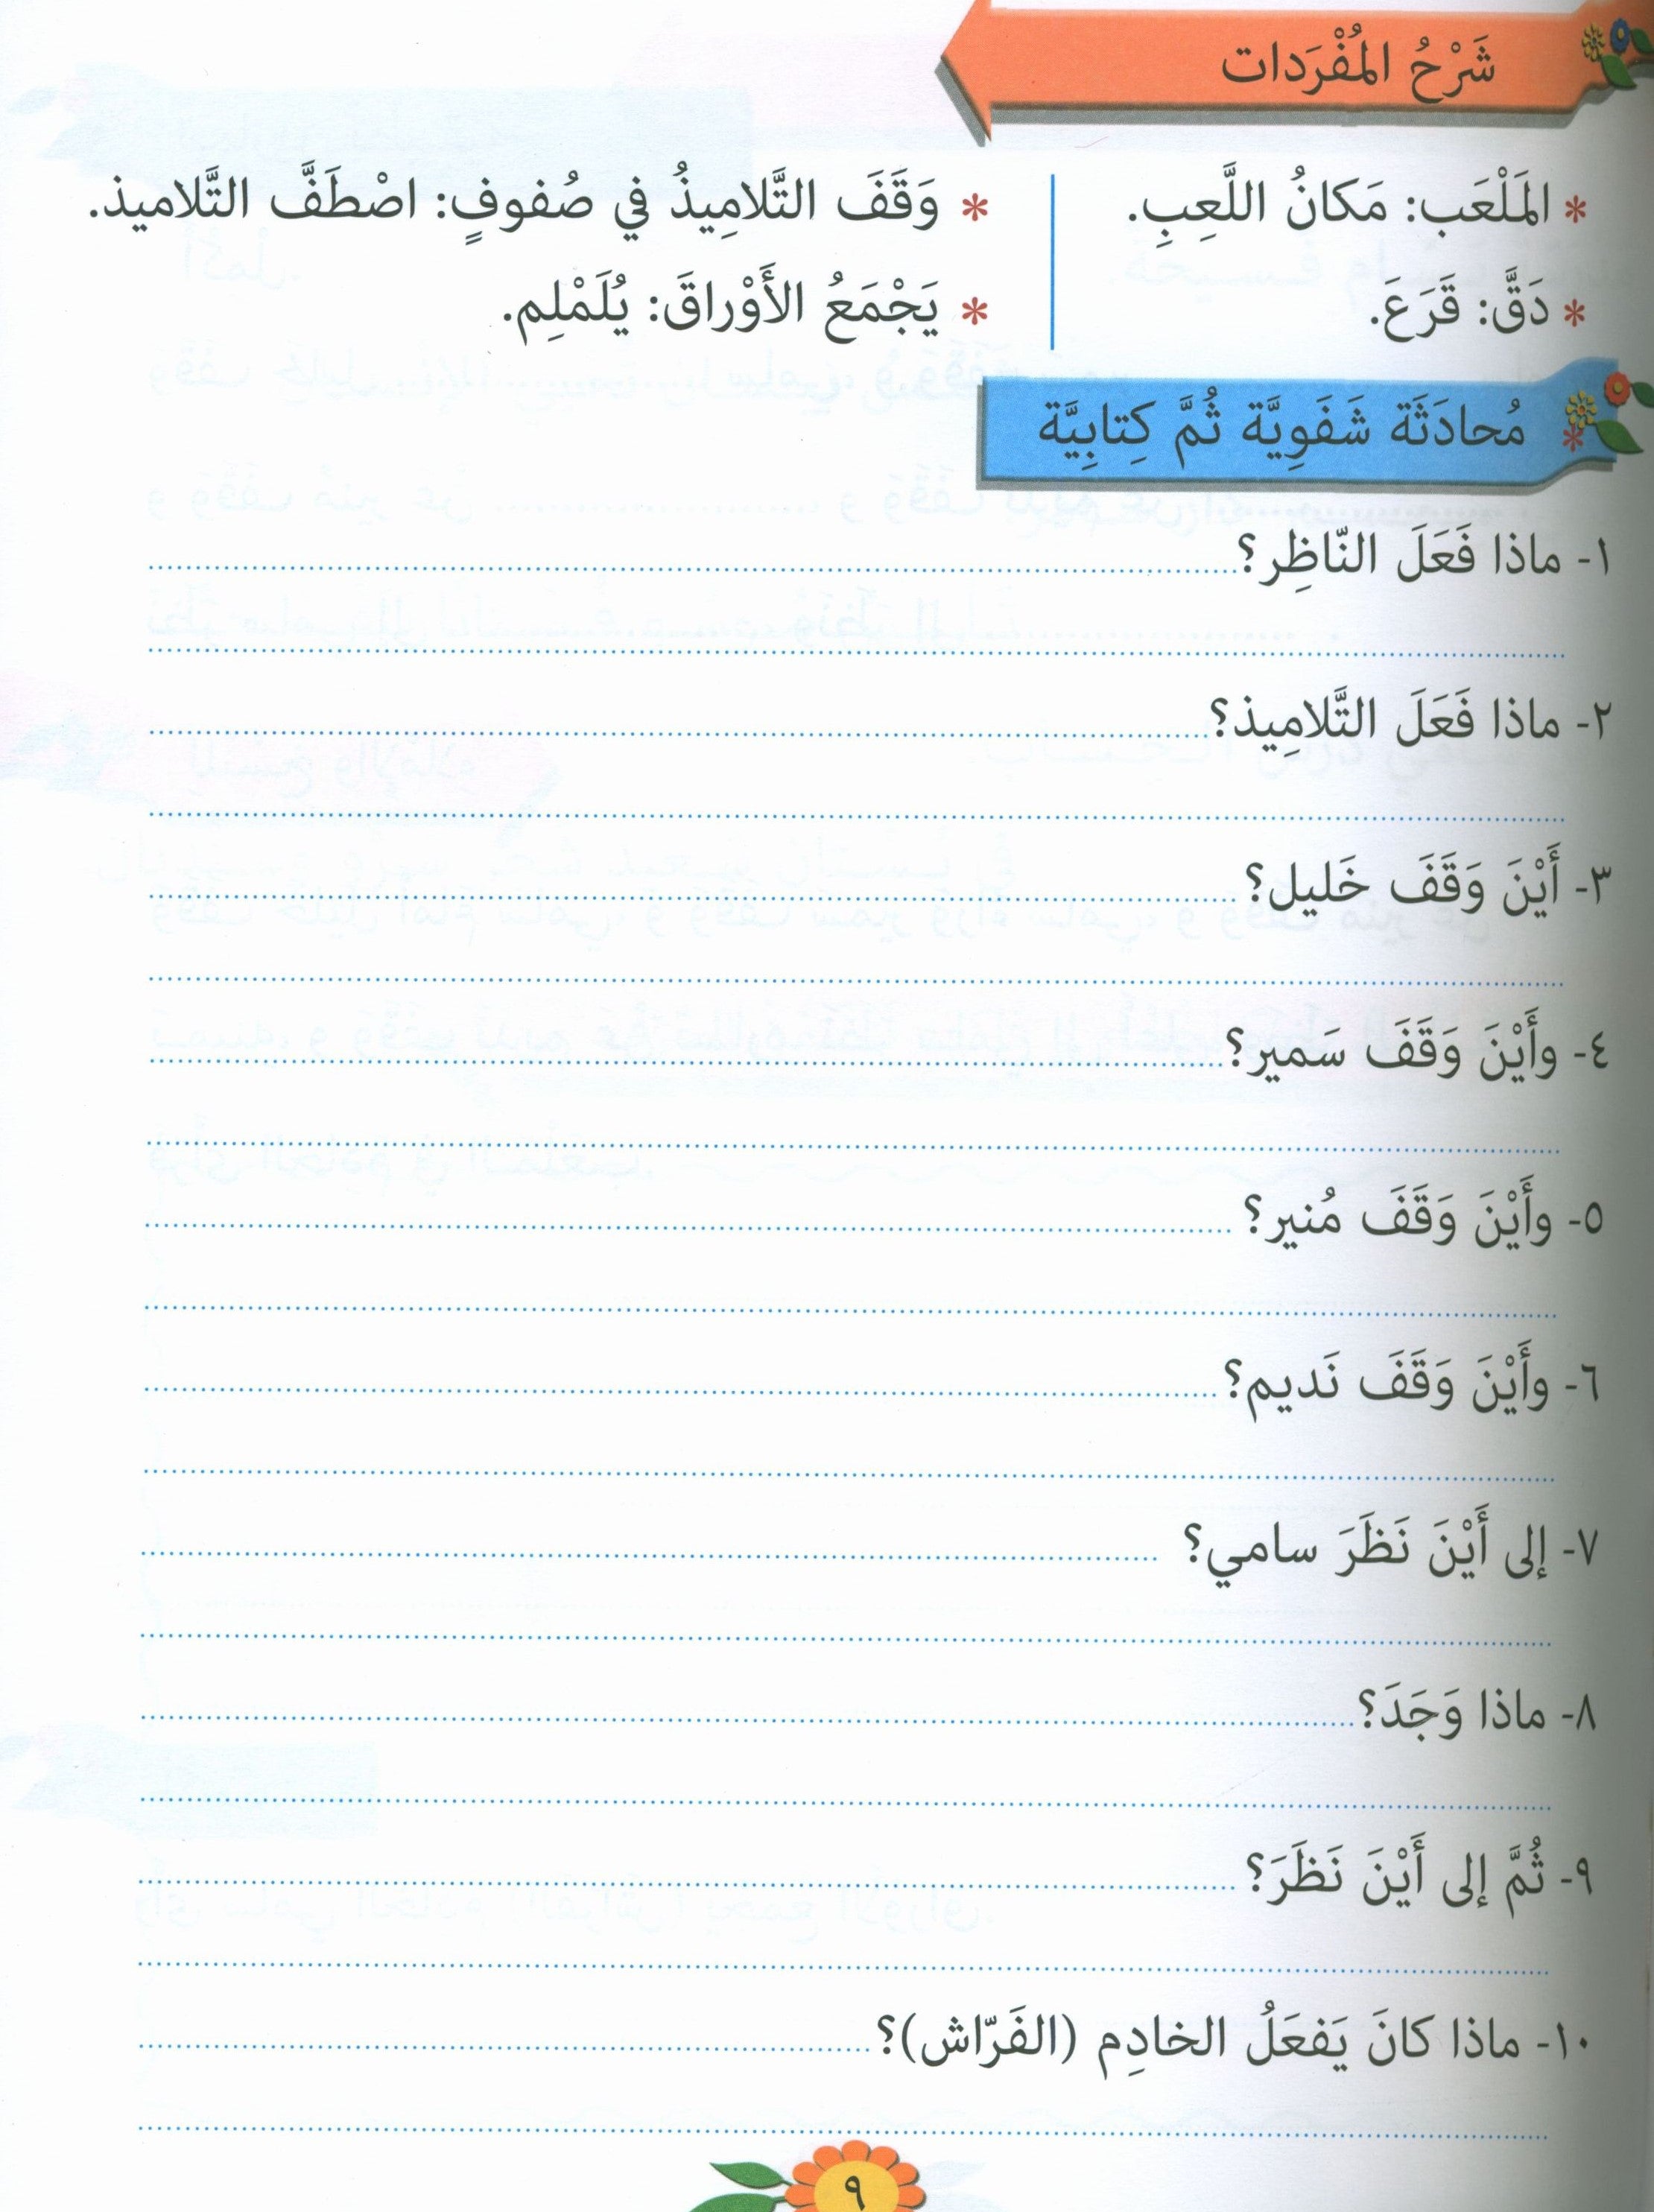 شَرْحُ المُفْرَدات
* المَلْعَب: مَكانُ اللَّعِبِ.
* دَقَّ: قَرَعَ.
* وَقَفَ التَّلامِيذُ في صُفوفٍ: اصْطَفَّ التَّلاميذ.
* يَجْمَعُ الأَوْراقَ: يُلَمْلِم.
مُحادَثَة شَفَوِيَّة ثُمَّ كِتابِيَّة
١- ماذا فَعَلَ النّاظِر؟
٢- ماذا فَعَلَ التَّلامِيذ؟
٣- أَيْنَ وَقَفَ خَليل؟
٤- وأَيْنَ وَقَفَ سَمير؟
٥- وأَيْنَ وَقَفَ مُنير؟
٦- وأَيْنَ وَقَفَ نَديم؟
٧- إلى أَيْنَ نَظَرَ سامي؟
٨- ماذا وَجَدَ؟
٩- ثُمَّ إلى أَيْنَ نَظَرَ؟
١٠- ماذا كانَ يَفعَلُ الخادِم (الفَرّاش)؟
٩